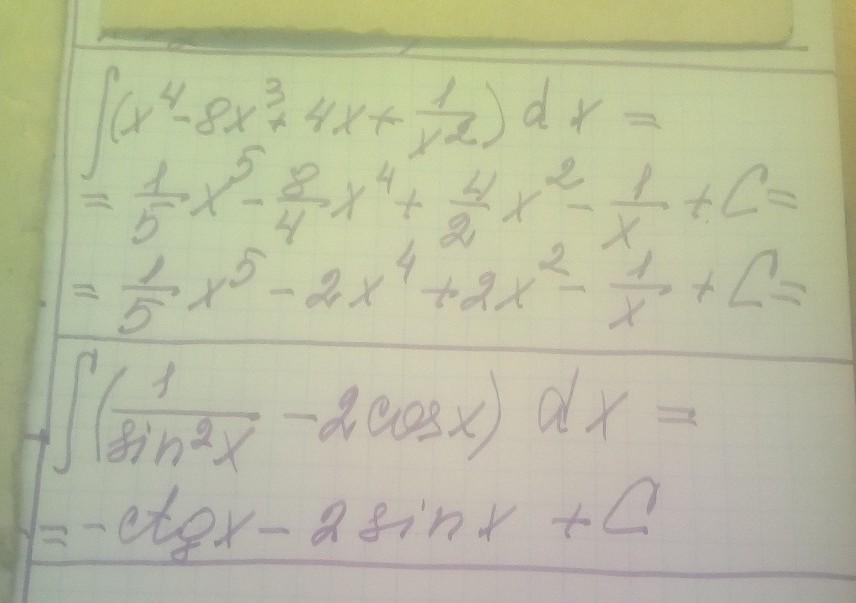 ∫(x⁴ - 8x³ + 4x + 1/x²) dx =
= 1/5 x⁵ - 8/4 x⁴ + 4/2 x² - 1/x + C =
= 1/5 x⁵ - 2x⁴ + 2x² - 1/x + C =
∫(1/sin²x - 2cosx) dx =
= -ctgx - 2sinx + C